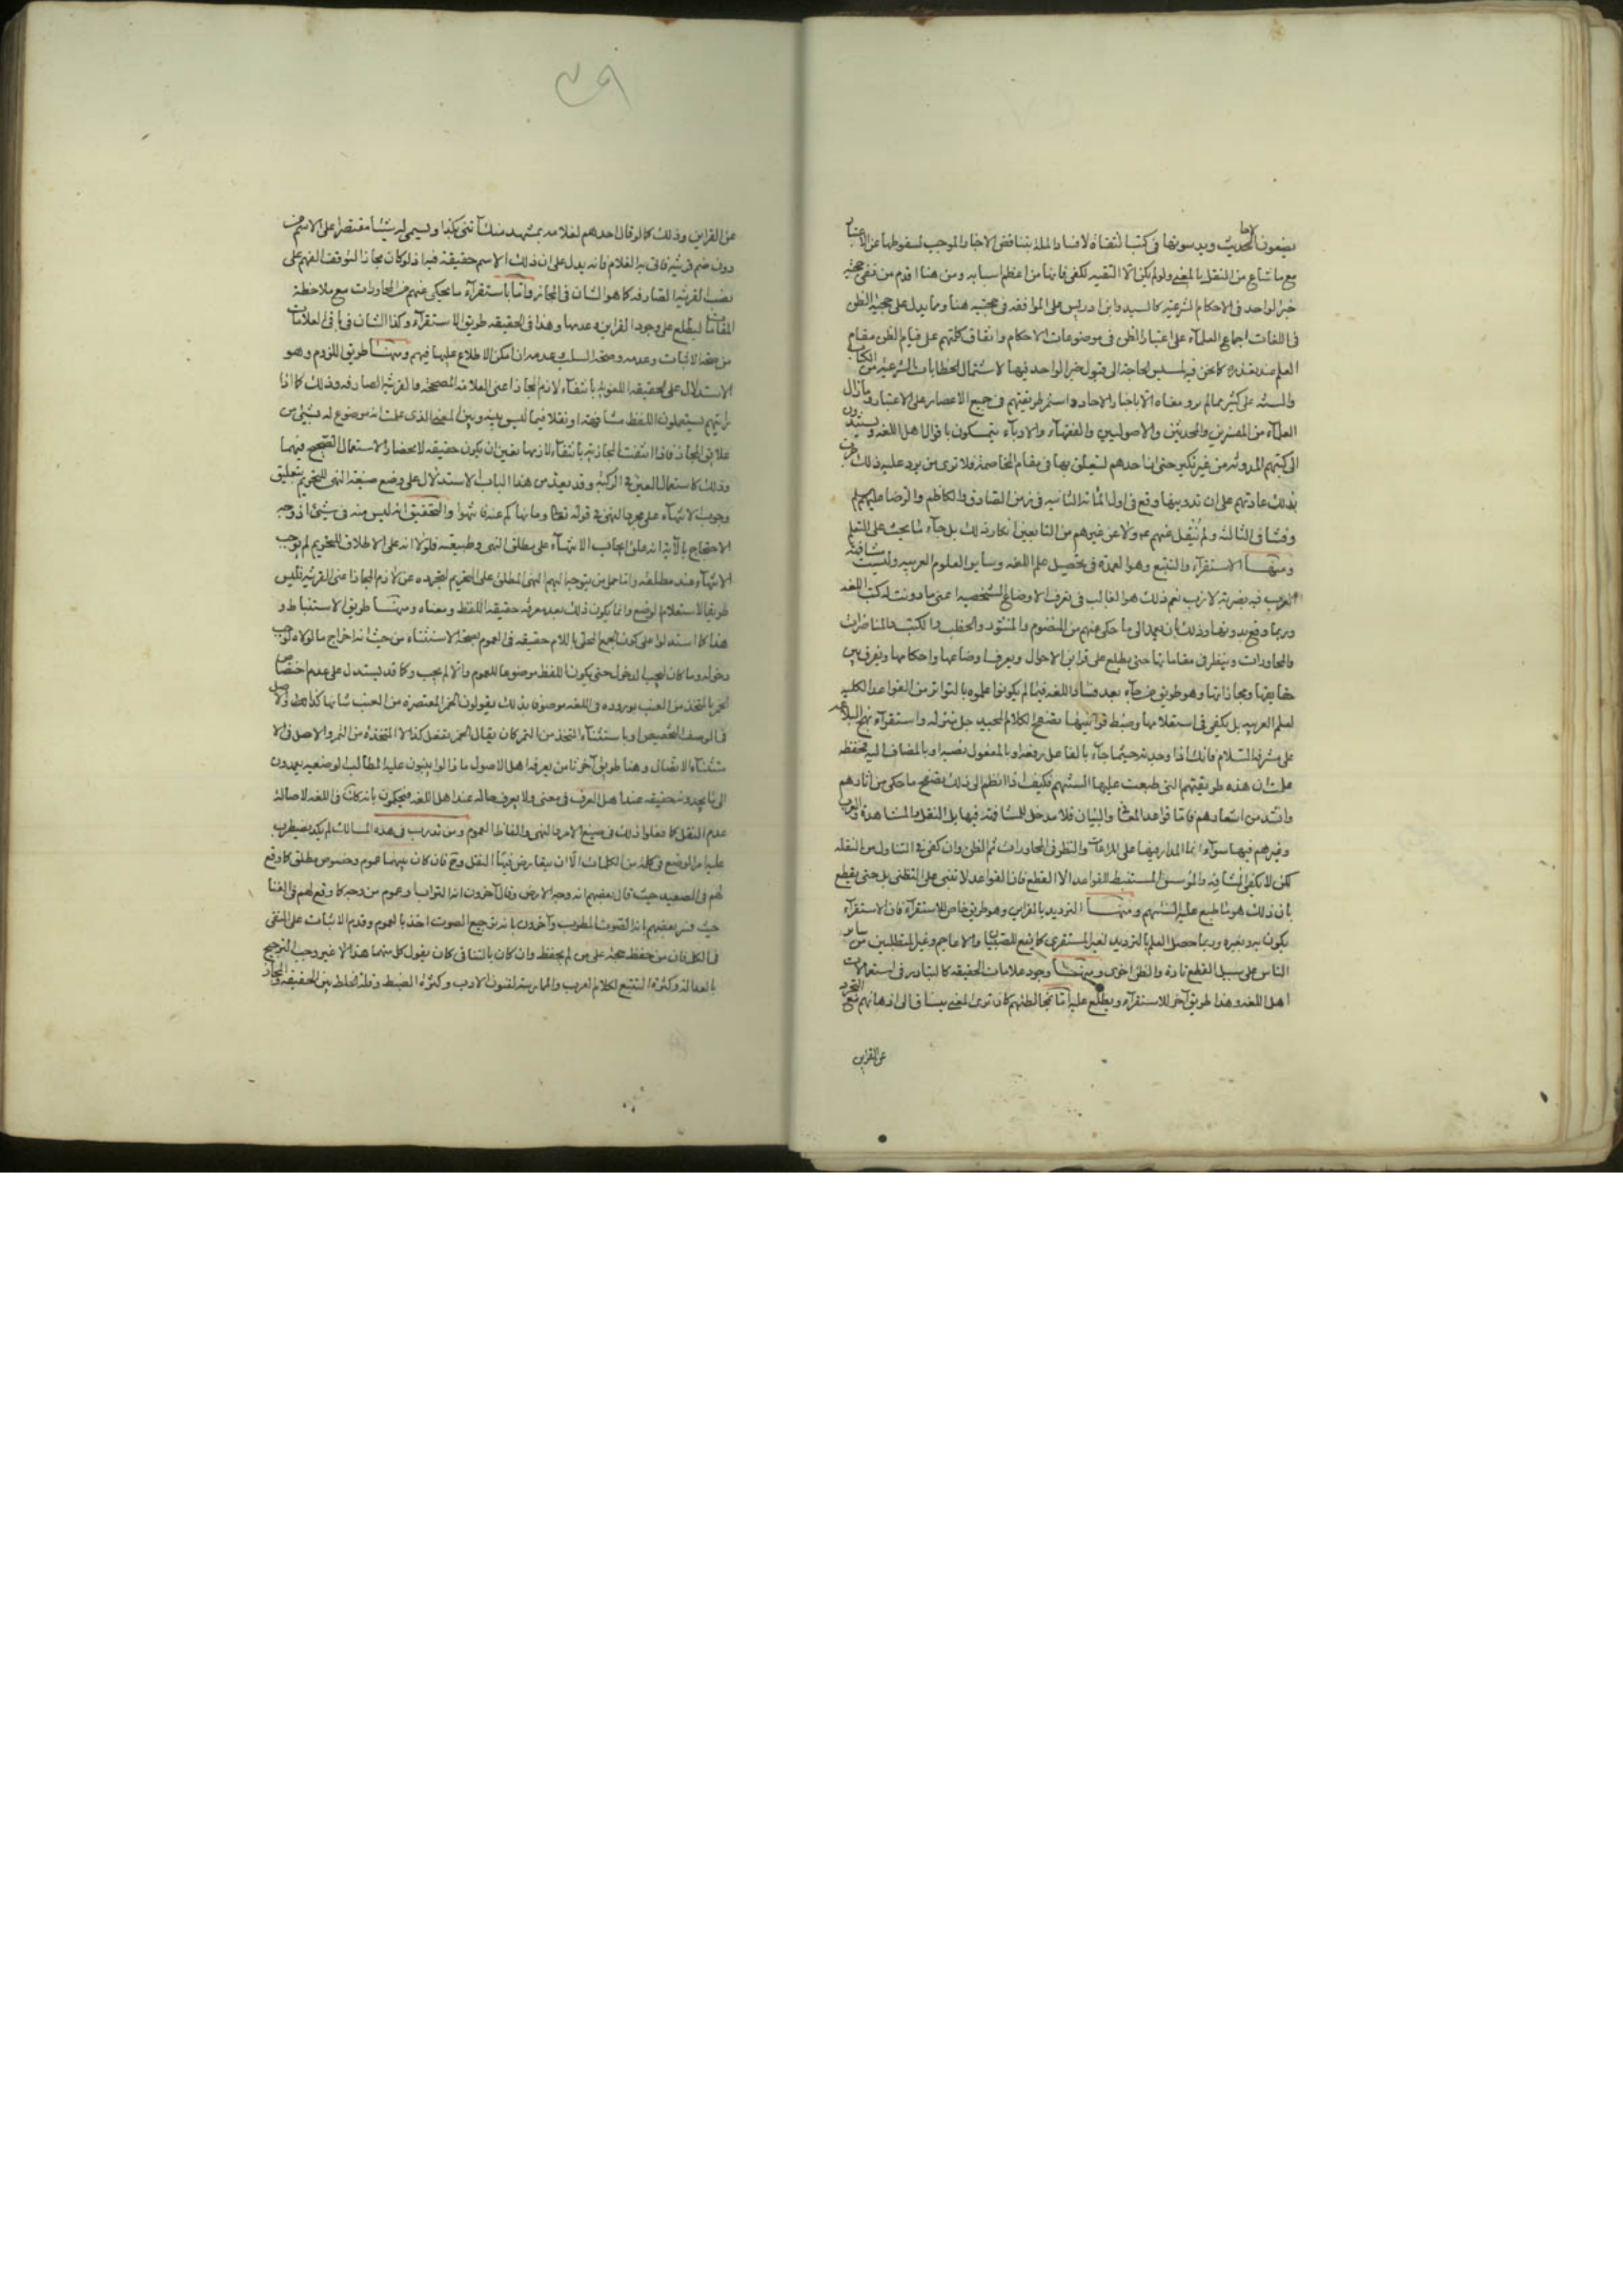 يضعون الاحاديث ويدسونها في كتب الثقاة لافساد الملة بتناقض الاخبار الموجب لسقوطها عن الاعتبار
مع ما شاع من النقل بالمعنى ولو لم يكن الا التقيه لكفى فانها من اعظم اسبابه ومن هنا اقدم من نفى حجية
خبر الواحد في الاحكام الشرعية كالسيد وابن ادريس على الموافقه في حجيته هنا ومما يدل على حجية الظن
في اللغات اجماع العلمآء على اعتبار الظن في موضوعات الاحكام واتفاق كلمتهم على قيام الظن مقام
العلم عند تعذره كما نحن فيه لمسيس الحاجة الى قبول خبر الواحد فيها لاشتمال الخطابات الشرعية من الكتاب
والسنه على كثير مما لم يرو معناه الا باخبار الاحاد واستمر طريقتهم في جميع الاعصار على الاعتبار وما زال
العلمآء من المفسرين والمحدثين والاصوليين والفقهآء والادبآء يتمسكون باقوال اهل اللغه ويستندون
الى كتبهم المدونه من غير نكير حتى ان احدهم ليتعلق بها في مقام المخاصمة فلا ترى من يرد عليه ذلك جرت
بذلك عادتهم على ان تدوينها وقع في اول المائة الثانيه في زمن الصادق والكاظم والرضا عليهم السلم
وفشا في الثالثه ولم ينقل عنهم ولا عن غيرهم من التابعين انكار ذلك بل جآء ما يحث على التعلم
ومنهـا الاستقرآء والتتبع وهو العمدة في تحصيل علم اللغه وساير العلوم العربيه وليست مشافهة
العرب فيه بضربة لازب نعم ذلك هو الغالب في تعرف الاوضاع الشخصيه اعنى ما دونت له كتب اللغه
وربما وقع بدونها وذلك بان يعمد الى ما حكى عنهم من المنظوم والمنثور والخطب والكتب والمناظرات
والمحاورات وينظر في مقاماتها حتى يطلع على قراين الاحوال ويعرف اوضاعها واحكامها ويفرق بين
حقايقها ومجازاتها وهو طريق من جآء بعد فساد اللغه فيما لم يكونوا علموه بالتواتر من القواعد الكليه
لعلم العربيه بل يكفى في استعلامها وضبط قوانينها تصفح الكلام المجيد جل منزله واستقرآء نهج البلاغه
على مشرفه السلام فانك اذا وجدته حيثما جآء بالفاعل رفعه او بالمفعول نصبه او بالمضاف اليه خفضه
علمت ان هذه طريقتهم التى طبعت عليها السنتهم فكيف اذا انظم الى ذلك تصفح ما حكى من آثارهم
وانشد من اشعارهم فاما قواعد المعاني والبيان فلا مدخل للمشافهة فيها بل النقل بالمشاهدة والعرب
وغيرهم فيها سوآء انما المدار فيها على المراعات والنظر في المحاورات ثم الظن وان كفى في التناول من النقله
لكن لا يكفى لمشافهه والمؤسس المستنبط للقواعد الا القطع فان القواعد لا تبنى على التظنى بل حتى يقطع
بان ذلك هو ما طبع عليه السنتهم ومنهـا الترديد بالقراين وهو طريق خاص للاستقرآء فان الاستقرآء
يكون به وبغيره وربما حصل العلم بالترديد لغير المستقرى كما يقع للصبيان والاعاجم وغير المتطلبين من ساير
الناس على سبيل القطع تارة والظن اخرى ومنهـا وجود علامات الحقيقه كالتبادر في استعمالات
اهل اللغه وهذا طريق آخر للاستقرآء ويطلع عليه اما بمخالطتهم كان ترى المعنى ينساق الى اذهانهم مع التجرد
عن القراين
٤٩
عن القراين وذلك كما لو قال احدهم لغلامه بمشهد منك آتنى بكذا ويسمى له شيئا مقتصرا على الاسم من
دون ضم قرينة فاتى به الغلام فانه يدل على ان ذلك الاسم حقيقة فيه اذ لو كان مجازا لتوقف الفهم على
نصب القرينة الصارفه كما هو الشان في المجاز واما باستقرآء ما يحكى عنهم من المحاورات مع ملاحظة
المقامات ليطلع على وجود القراين وعدمها وهذا في الحقيقه طريق الاستقرآء وكذا الشان في باقى العلامات
من صحة الاثبات وعدمه وصحة السلب وعدمه ان امكن الاطلاع عليها فيهم ومنهـا طريق اللزوم وهو
الاستدلال على الحقيقه اللغويه بانتفآء لازم المجاز اعنى العلاقه المصححه والقرينه الصارفه وذلك كما اذا
رايتهم يستعملون اللفظ مشافهة او نقلا فيما ليس بينه وبين المعنى الذى علمت انه موضوع له شيئ من
علائق المجاز فاذا انتفت المجازيه بانتفآء لازمها تعين ان يكون حقيقه لانحصار الاستعمال الصحيح فيهما
وذلك كاستعمال العين في الركبة وقد يعد من هذا الباب الاستدلال على وضع صيغة النهى للتحريم بتعليق
وجوب الانتهآء على مجرد النهى في قوله تعالى وما نهاكم عنه فانتهوا والتحقيق انه ليس منه في شيئ اذ وجه
الاحتجاج بالآية انه علق ايجاب الانتهآء على مطلق النهى وطبيعته فلولا انه على الاطلاق للتحريم لم يوجب
الانتهآء عند مطلقه وانما حمل من يتوجه اليهم النهى المطلق على التحريم لتجرده عن لازم المجاز اعنى القرينه فليس
طريقا لاستعلام الوضع وانما يكون ذلك بعد معرفة حقيقة اللفظ ومعناه ومنهـا طريق الاستنباط و
هذا كما استدلوا على كون الجمع المحلى باللام حقيقه في العموم بصحة الاستثناء من حيث انه اخراج ما لولاه لوجب
دخوله وما كان ليجب الدخول حتى يكون اللفظ موضوعا للعموم والا لم يجب وكما قد يستدل على عدم اختصاص
الخمر بالمتخذ من العنب بوروده في اللغه موصوفا بذلك يقولون الخمر المعتصرة من العنب شانها كذا والاصل
في الوصف التخصيص وباستثنآء المتخذ من التمر كان يقال الخمر تفعل كذا الا المتخذة من التمر والاصل في الا
ستثنآء الاتصال وهنا طريق آخر ثامن يعرفه اهل الاصول ما زالوا يبنون عليه المطالب الوضعيه يعمدون
الى ما يجدونه حقيقه عند اهل العرف في معنى ولا يعرف حاله عند اهل اللغه فيحكمون بانه كان في اللغه لاصالة
عدم النقل كما فعلوا ذلك في صيغ الامر والنهى والفاظ العموم ومن تدرب في هذه المسالك لم يكد يضطرب
عليه امر الوضع في كلمة من الكلمات الا ان يتعارض فيها النقل وح فان كان بينهما عموم وخصوص مطلق كما وقع
لهم في الصعيد حيث قال بعضهم انه وجه الارض وقال آخرون انه التراب وعموم من وجه كما وقع لهم في الغنا
حيث فسر بعضهم انه الصوت المطرب وآخرون بانه ترجيع الصوت اخذ بالعموم وقدم الاثبات على النفى
في الكل فان من حفظ حجة على من لم يحفظ وان كان بالتنافى كان يقول كل منهما هذا لا غير وجب الترجيح
بالعدالة وكثرة التتبع لكلام العرب والممارسة لفنون الادب وكثرة الضبط وقلة الخلط بين الحقيقه والمجاز